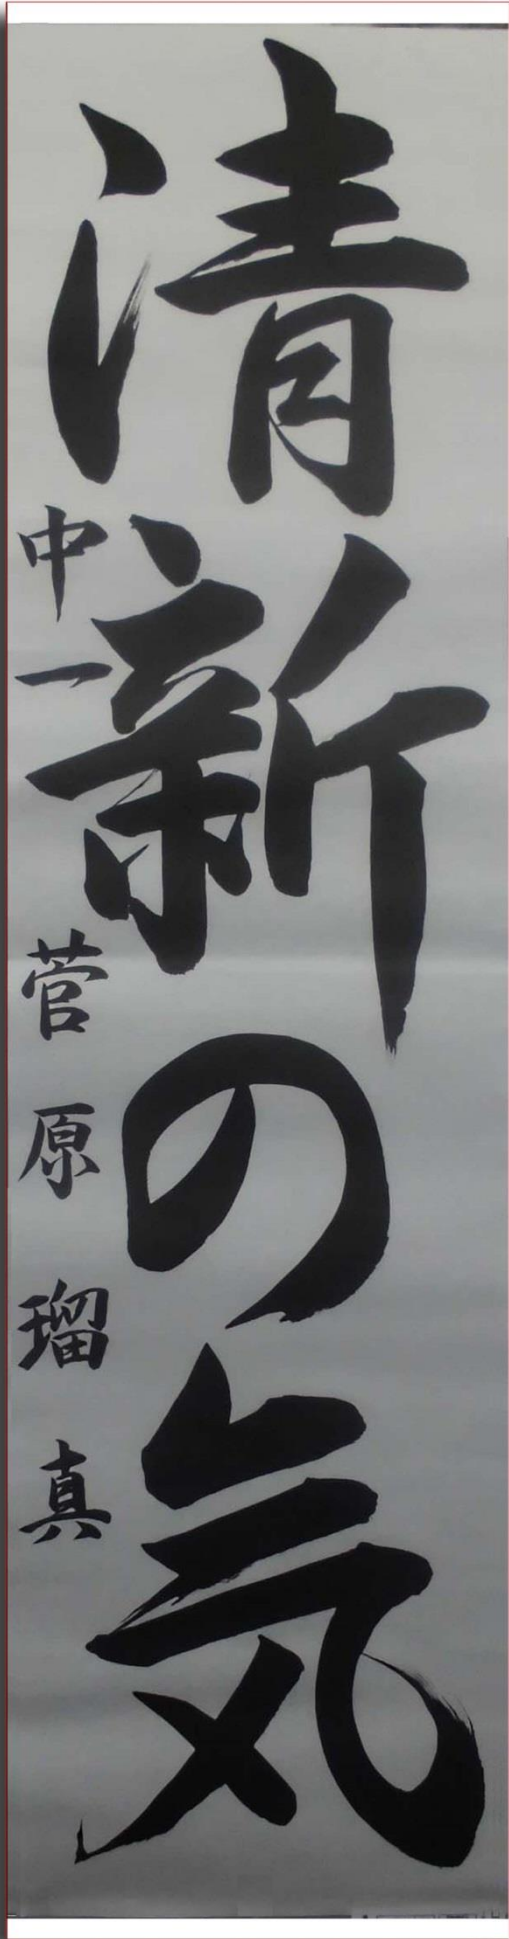 清新の気
中一 菅原瑠真